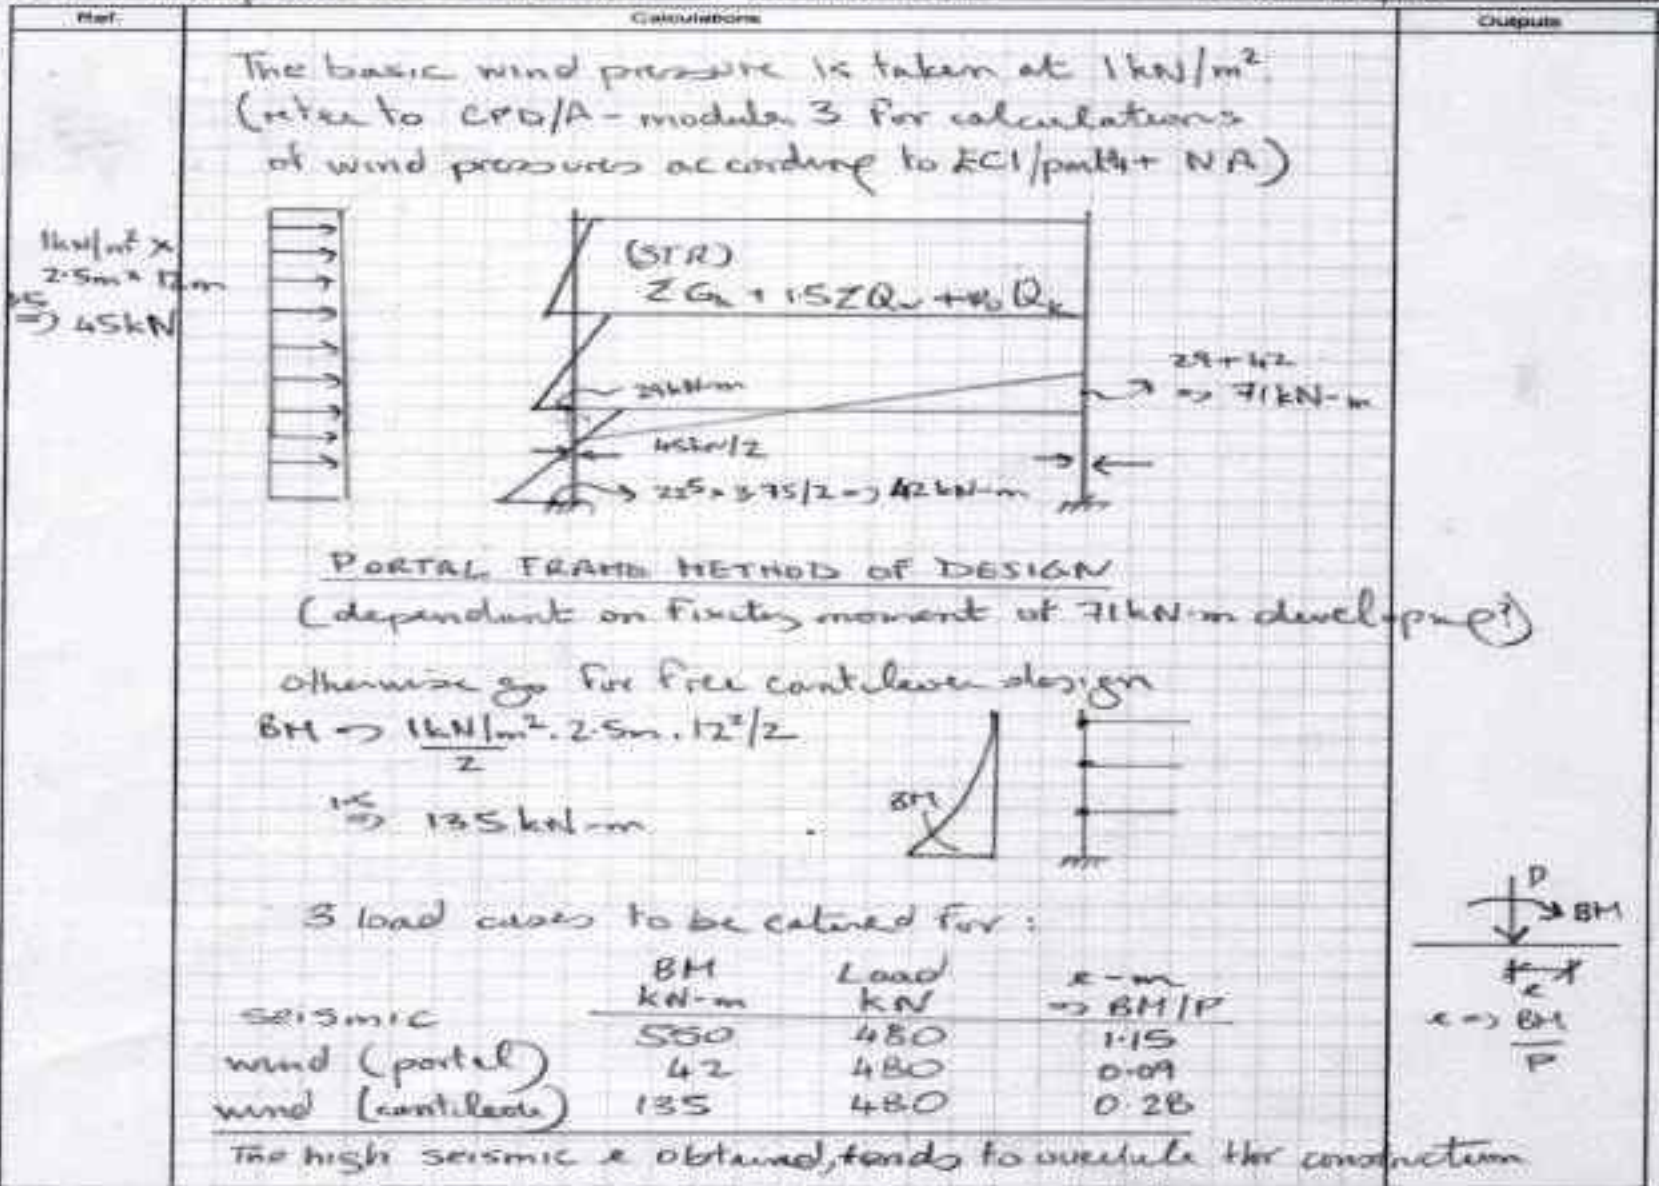 Ref.
Calculations
Outputs
The basic wind pressure is taken at 1kN/m².
(refer to CPD/A - module 3 for calculations
of wind pressures according to EC1/part4 + NA)
1kN/m² x
2.5m x 12m
1.5
=> 45kN
(STR)
ΣGk + 1.5ΣQw + ψ0 Qk
29kN-m
29+42
=> 71kN-m
45kN/2
22⁵ x 3.75/2 => 42kN-m
PORTAL FRAME METHOD OF DESIGN
(dependant on fixity moment of 71kN-m developing?)
otherwise go for free cantilever design
BM => 1kN/m² . 2.5m . 12²/2
2
1.5
=> 135kN-m
BM
3 load cases to be catered for:
BM Load e-m
kN-m kN => BM/P
seismic 550 480 1.15
wind (portal) 42 480 0.09
wind (cantilever) 135 480 0.28
P
BM
e
e => BM
P
The high seismic e obtained, tends to overrule this construction